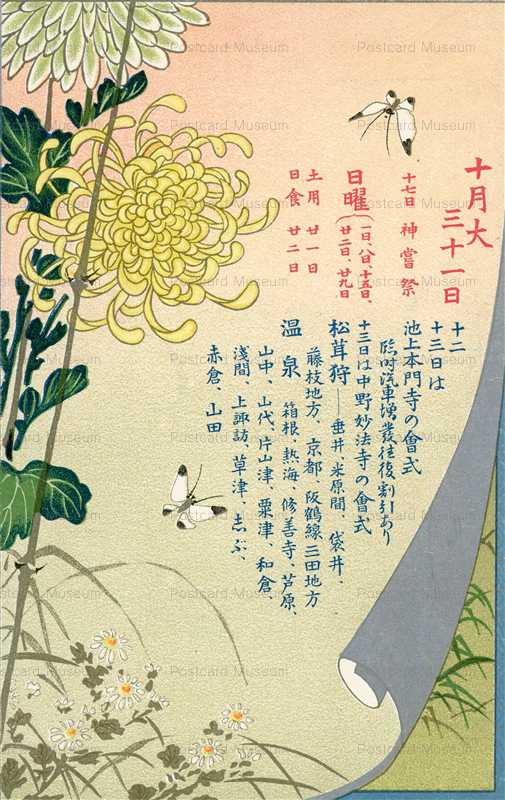 十月大
三十一日
十七日 神嘗祭
日曜
一日、八日、十五、
廿二日、廿九日
土用 廿一日
日食 廿二日
十二
十三日は
池上本門寺の會式
臨时汽車増發往復割引あり
十三日は中野妙法寺の會式
松茸狩――垂井、米原間、袋井、
藤枝地方、京都、阪鶴線三田地方
温泉 箱根、熱海、修善寺、芦原、
山中、山代、片山津、粟津、和倉、
淺間、上諏訪、草津、志ぶ、
赤倉、山田
Postcard Museum